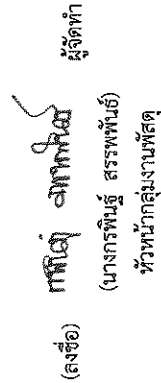 (ลงชื่อ) กรพินธุ์ สรรพพันธ์ ผู้จัดทำ
(นางกรพินธุ์ สรรพพันธ์)
หัวหน้ากลุ่มงานพัสดุ